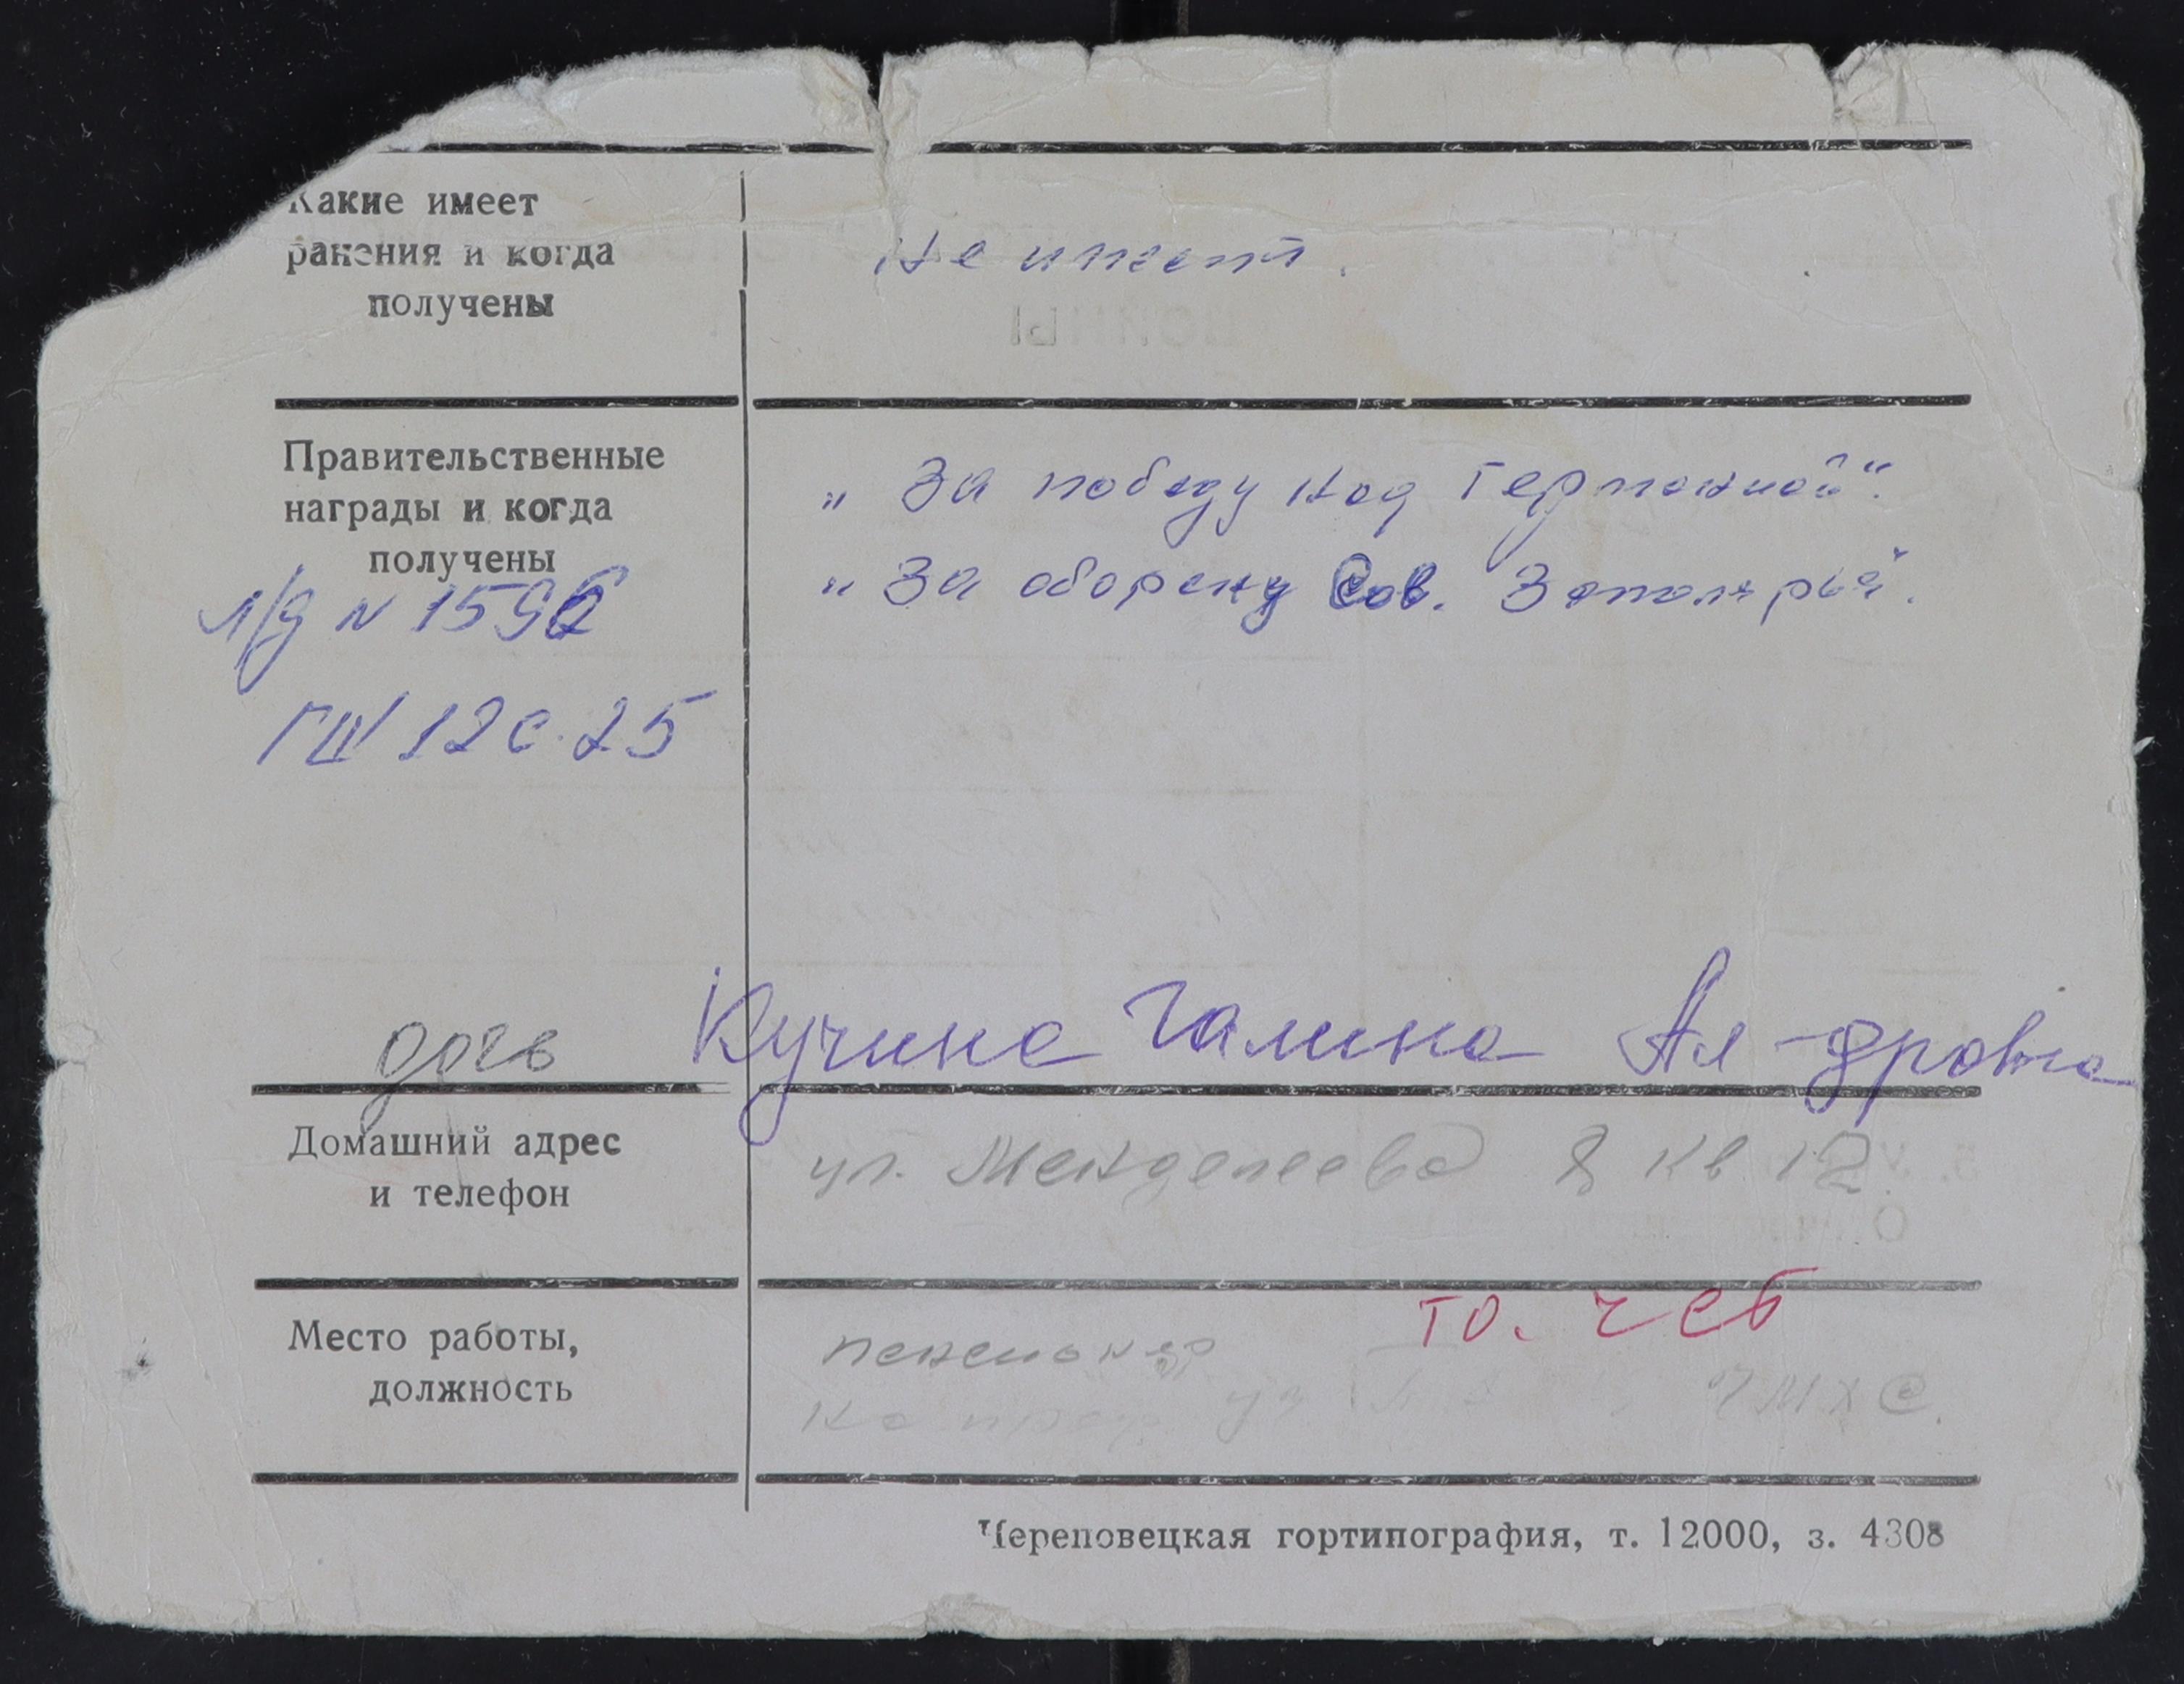 Какие имеет
ранения и когда
получены
не имеет.
Правительственные
награды и когда
получены
„За победу над Германией“.
„За оборону Сов. Заполярья“.
л/д N 1596
ГШ 120.25
дочь Кучина Галина Ал-дровна
Домашний адрес
и телефон
ул. Менделеева 8 кв 12.
Место работы,
должность
пенсионер
ЧМХС.
Череповецкая гортипография, т. 12000, з. 4308